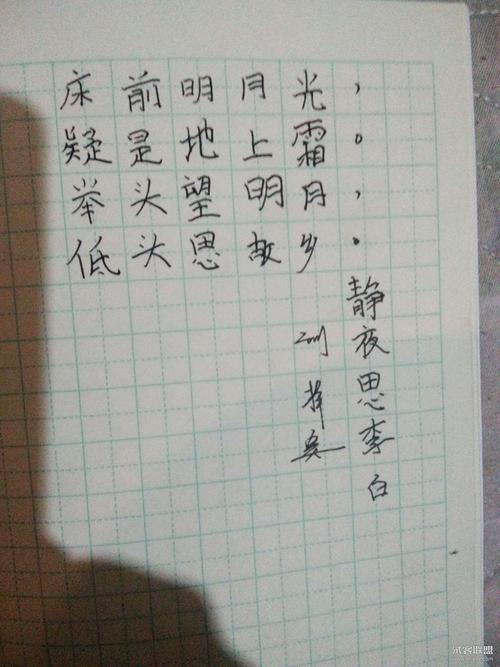 床前明月光，
疑是地上霜。
举头望明月，
低头思故乡。
静夜思李白
试客联盟